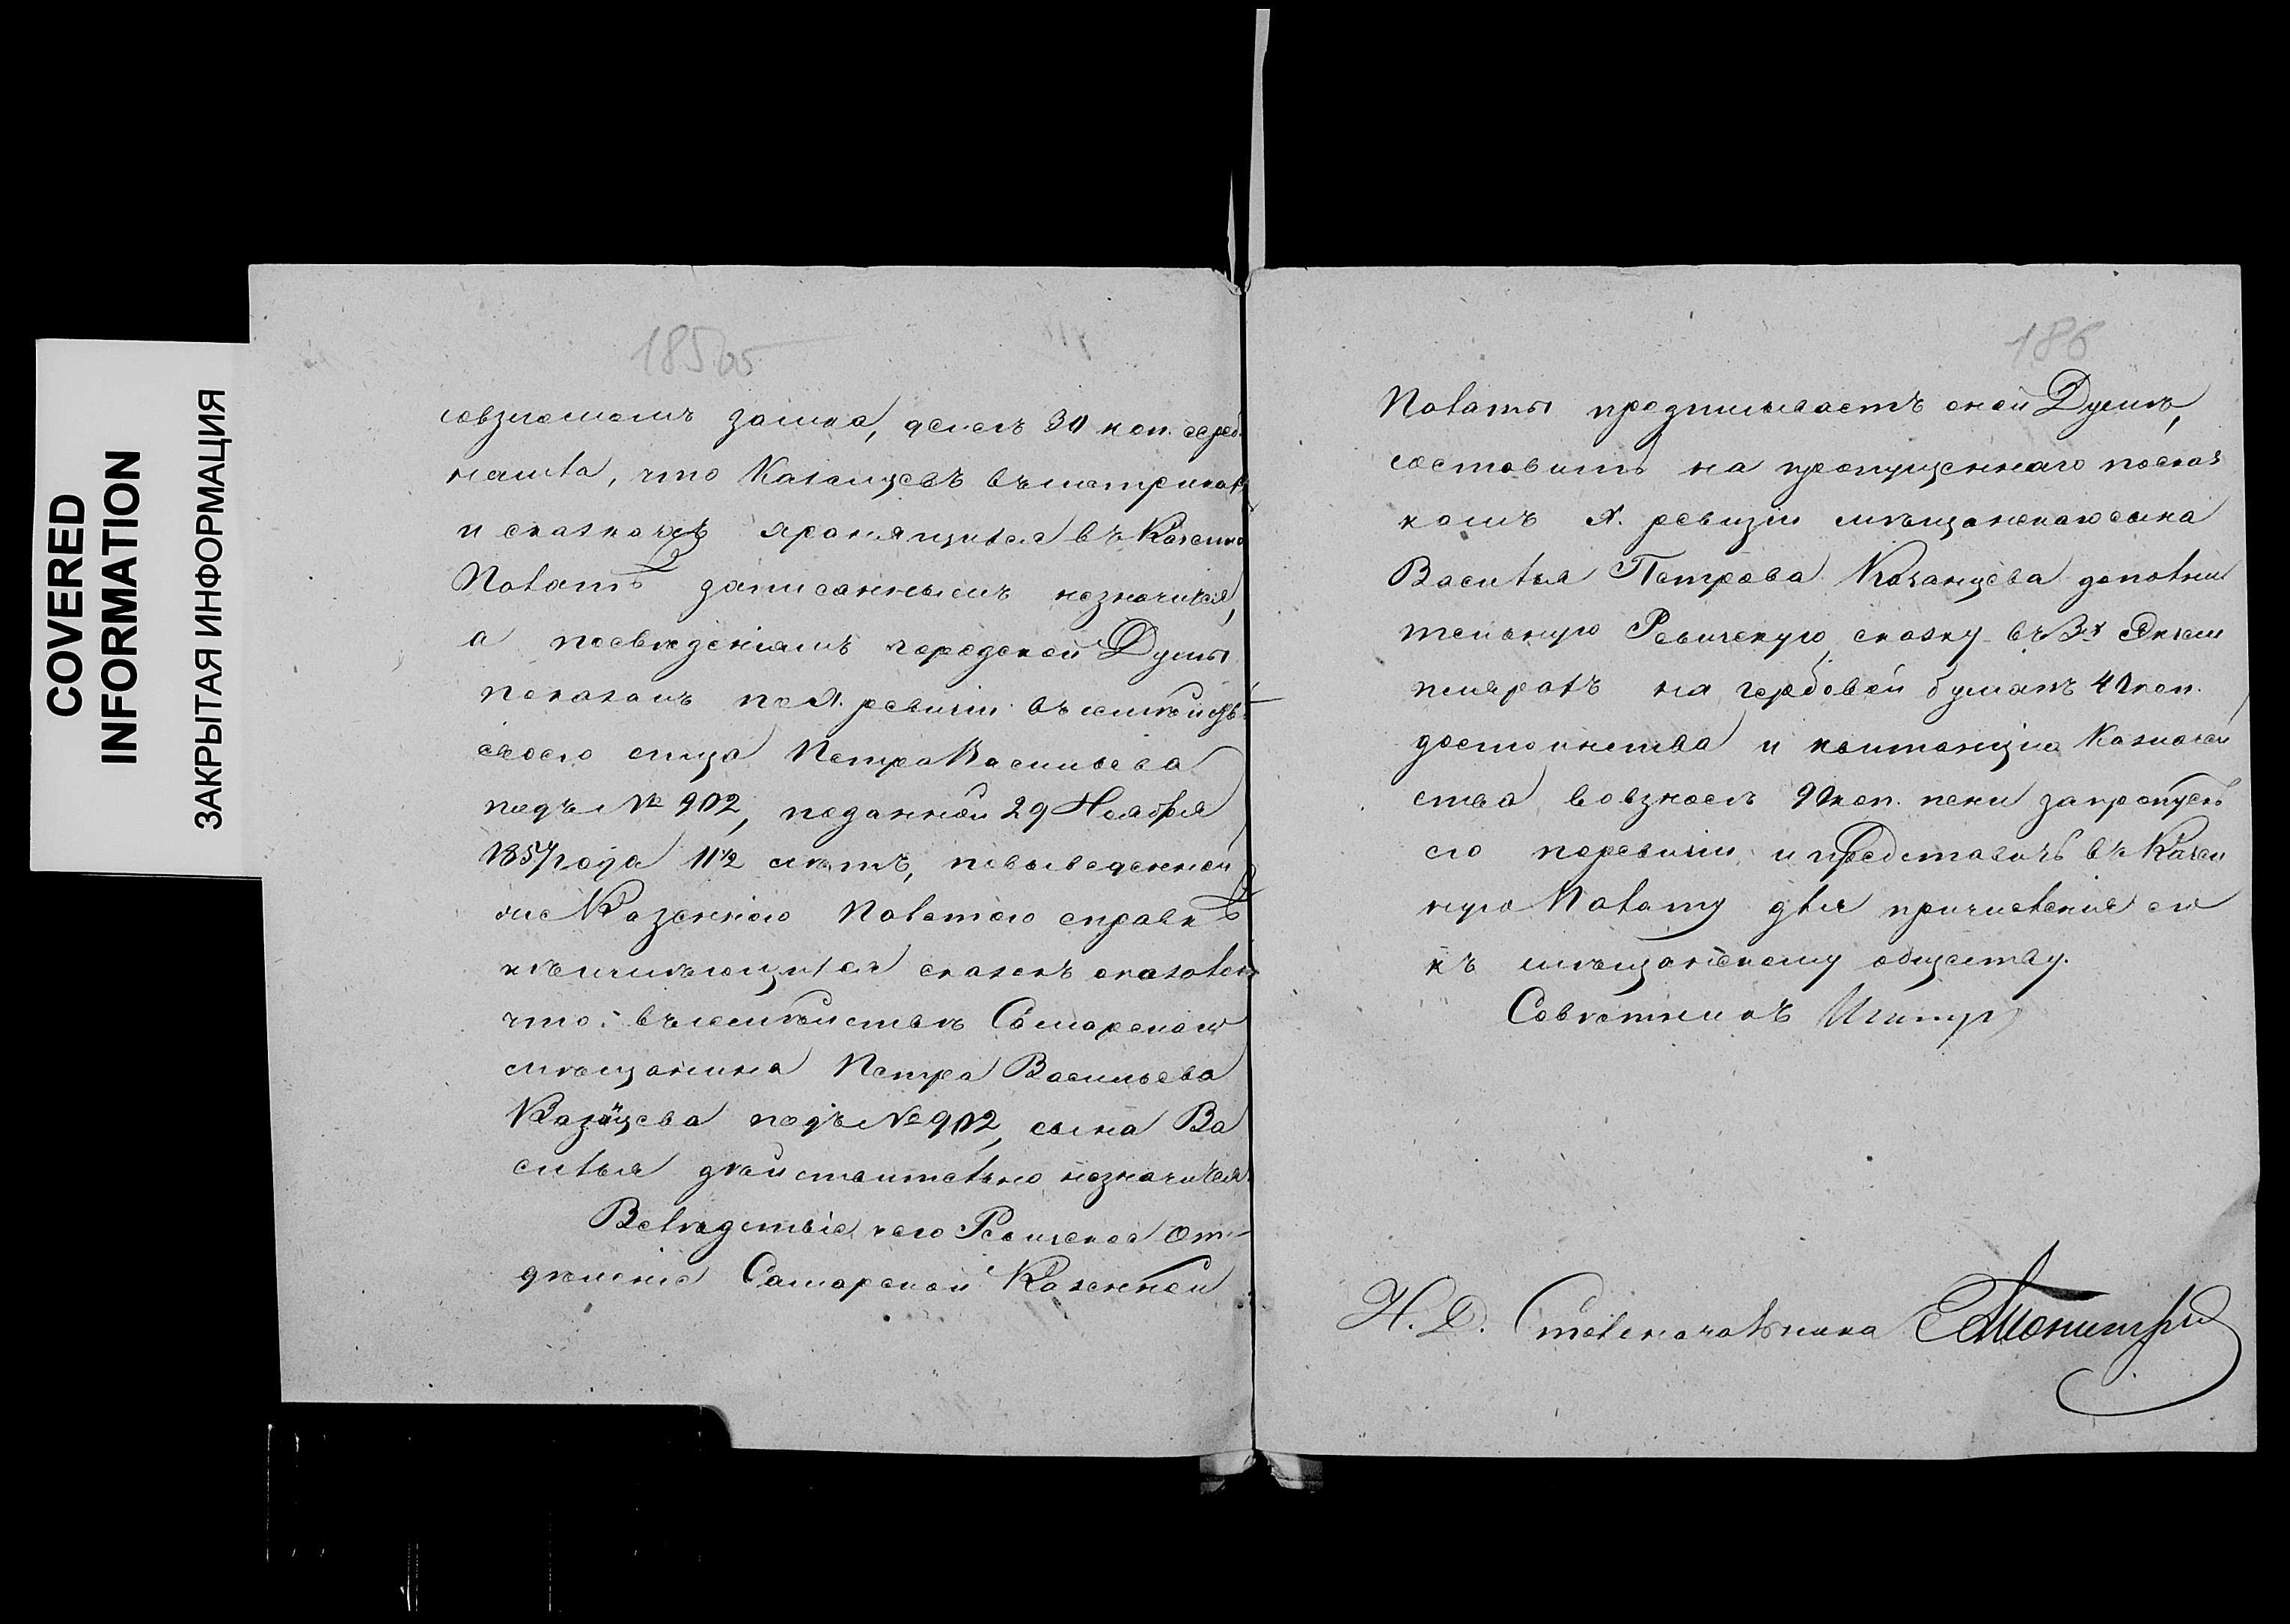 COVERED
INFORMATION
ЗАКРЫТАЯ ИНФОРМАЦИЯ
185об
займа, денегъ 30 коп. сереб.
что Казанцевъ въ метрикахъ
и сказкахъ хранящихся въ Казенно
Палатѣ записаннымъ незначится,
а посвѣденіямъ городской Думы
показанъ по X. ревизіи въ семействѣ
своего отца Петра Васильева
подъ № 902, поданной 29 Ноября
1857 года 11½ лѣтъ, повыведенной
же Казенною Палатою справкѣ
имѣющихся сказокъ оказалось
что: въ семействѣ Самарскаго
мѣщанина Петра Васильева
Казанцева подъ № 902, сына Ва
силья дѣйствительно незначится.
Вслѣдствіе чего Ревизское От-
дѣленіе Самарской Казенной
186
Палаты предписываетъ оной Думѣ,
составить на пропущеннаго посказ
камъ X. ревизіи мѣщанскаго сына
Василья Петрова Казанцева дополни
тельную Ревизскую сказку въ 3х Экзем
плярахъ на гербовой бумагѣ 40 коп.
достоинства и квитанцію Казначей
ства во взносѣ 90 коп. пени за пропускъ
его по ревизіи, и представить въ Казен
ную Палату для причисленія его
къ мѣщанскому обществу.
Совѣтникъ
И. Д. Столоначальника